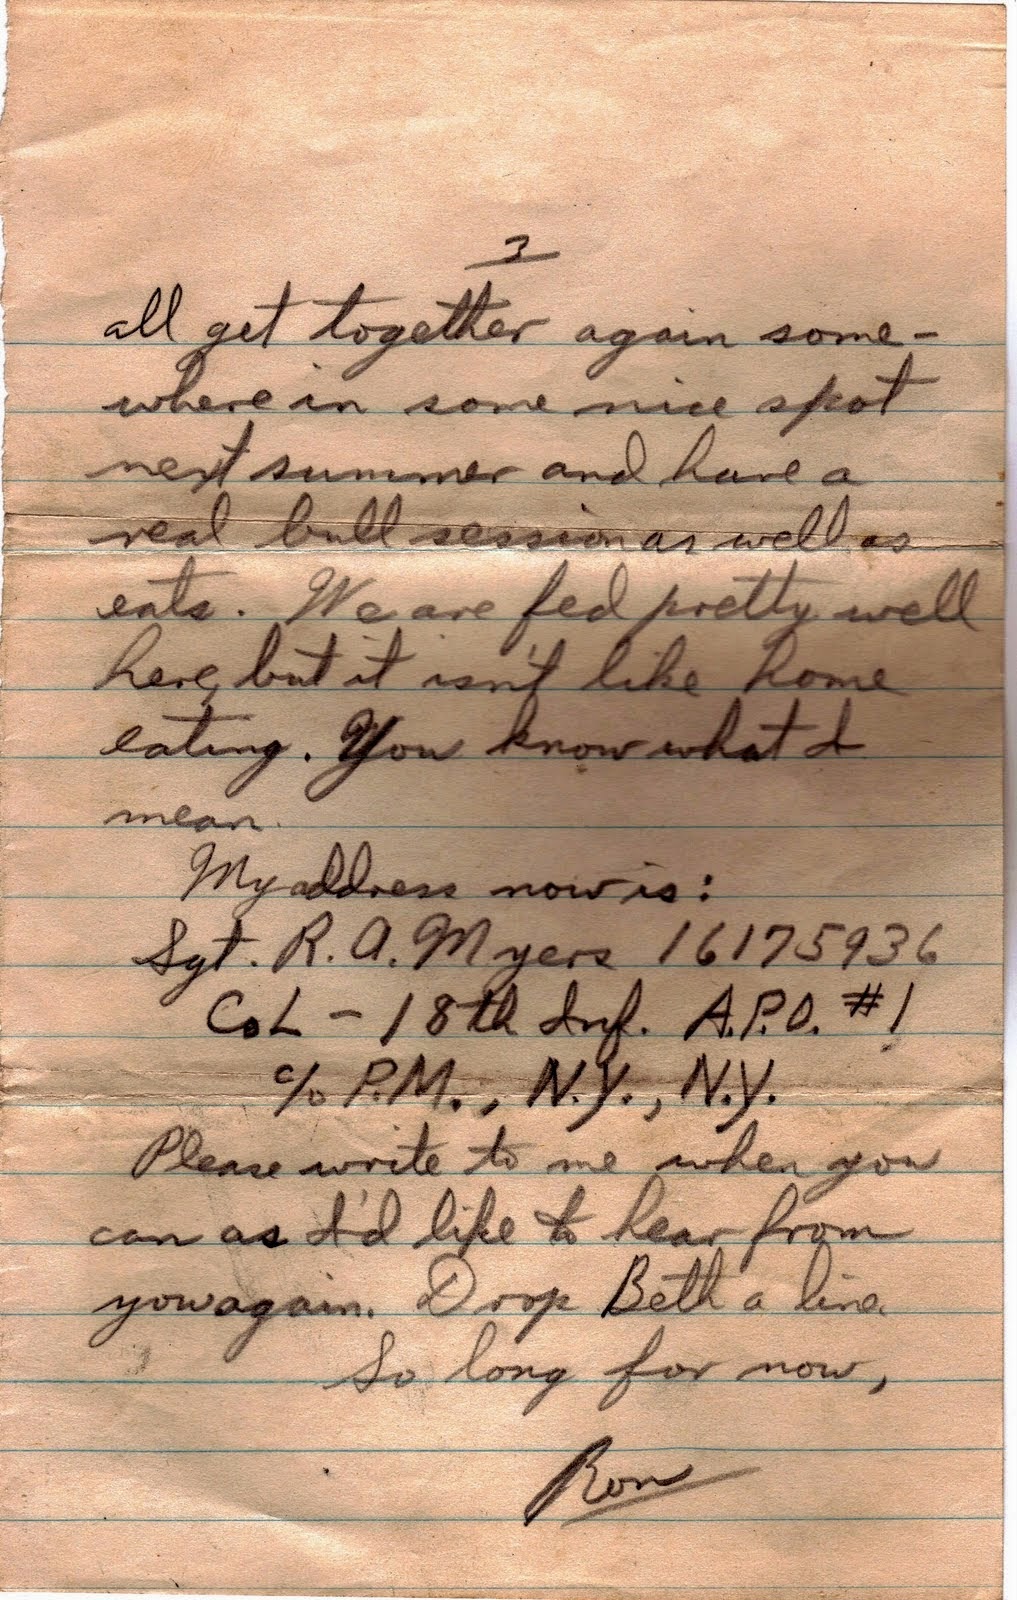 3
all get together again some-
where in some nice spot
next summer and have a
real bull session as well as
eats. We are fed pretty well
here, but it isn't like home
eating. You know what I
mean.
My address now is:
Sgt. R. A. Myers 16175936
Co L - 18th Inf. A.P.O. #1
c/o P.M., N.Y., N.Y.
Please write to me when you
can as I'd like to hear from
you again. Drop Beth a line.
So long for now,
Ron